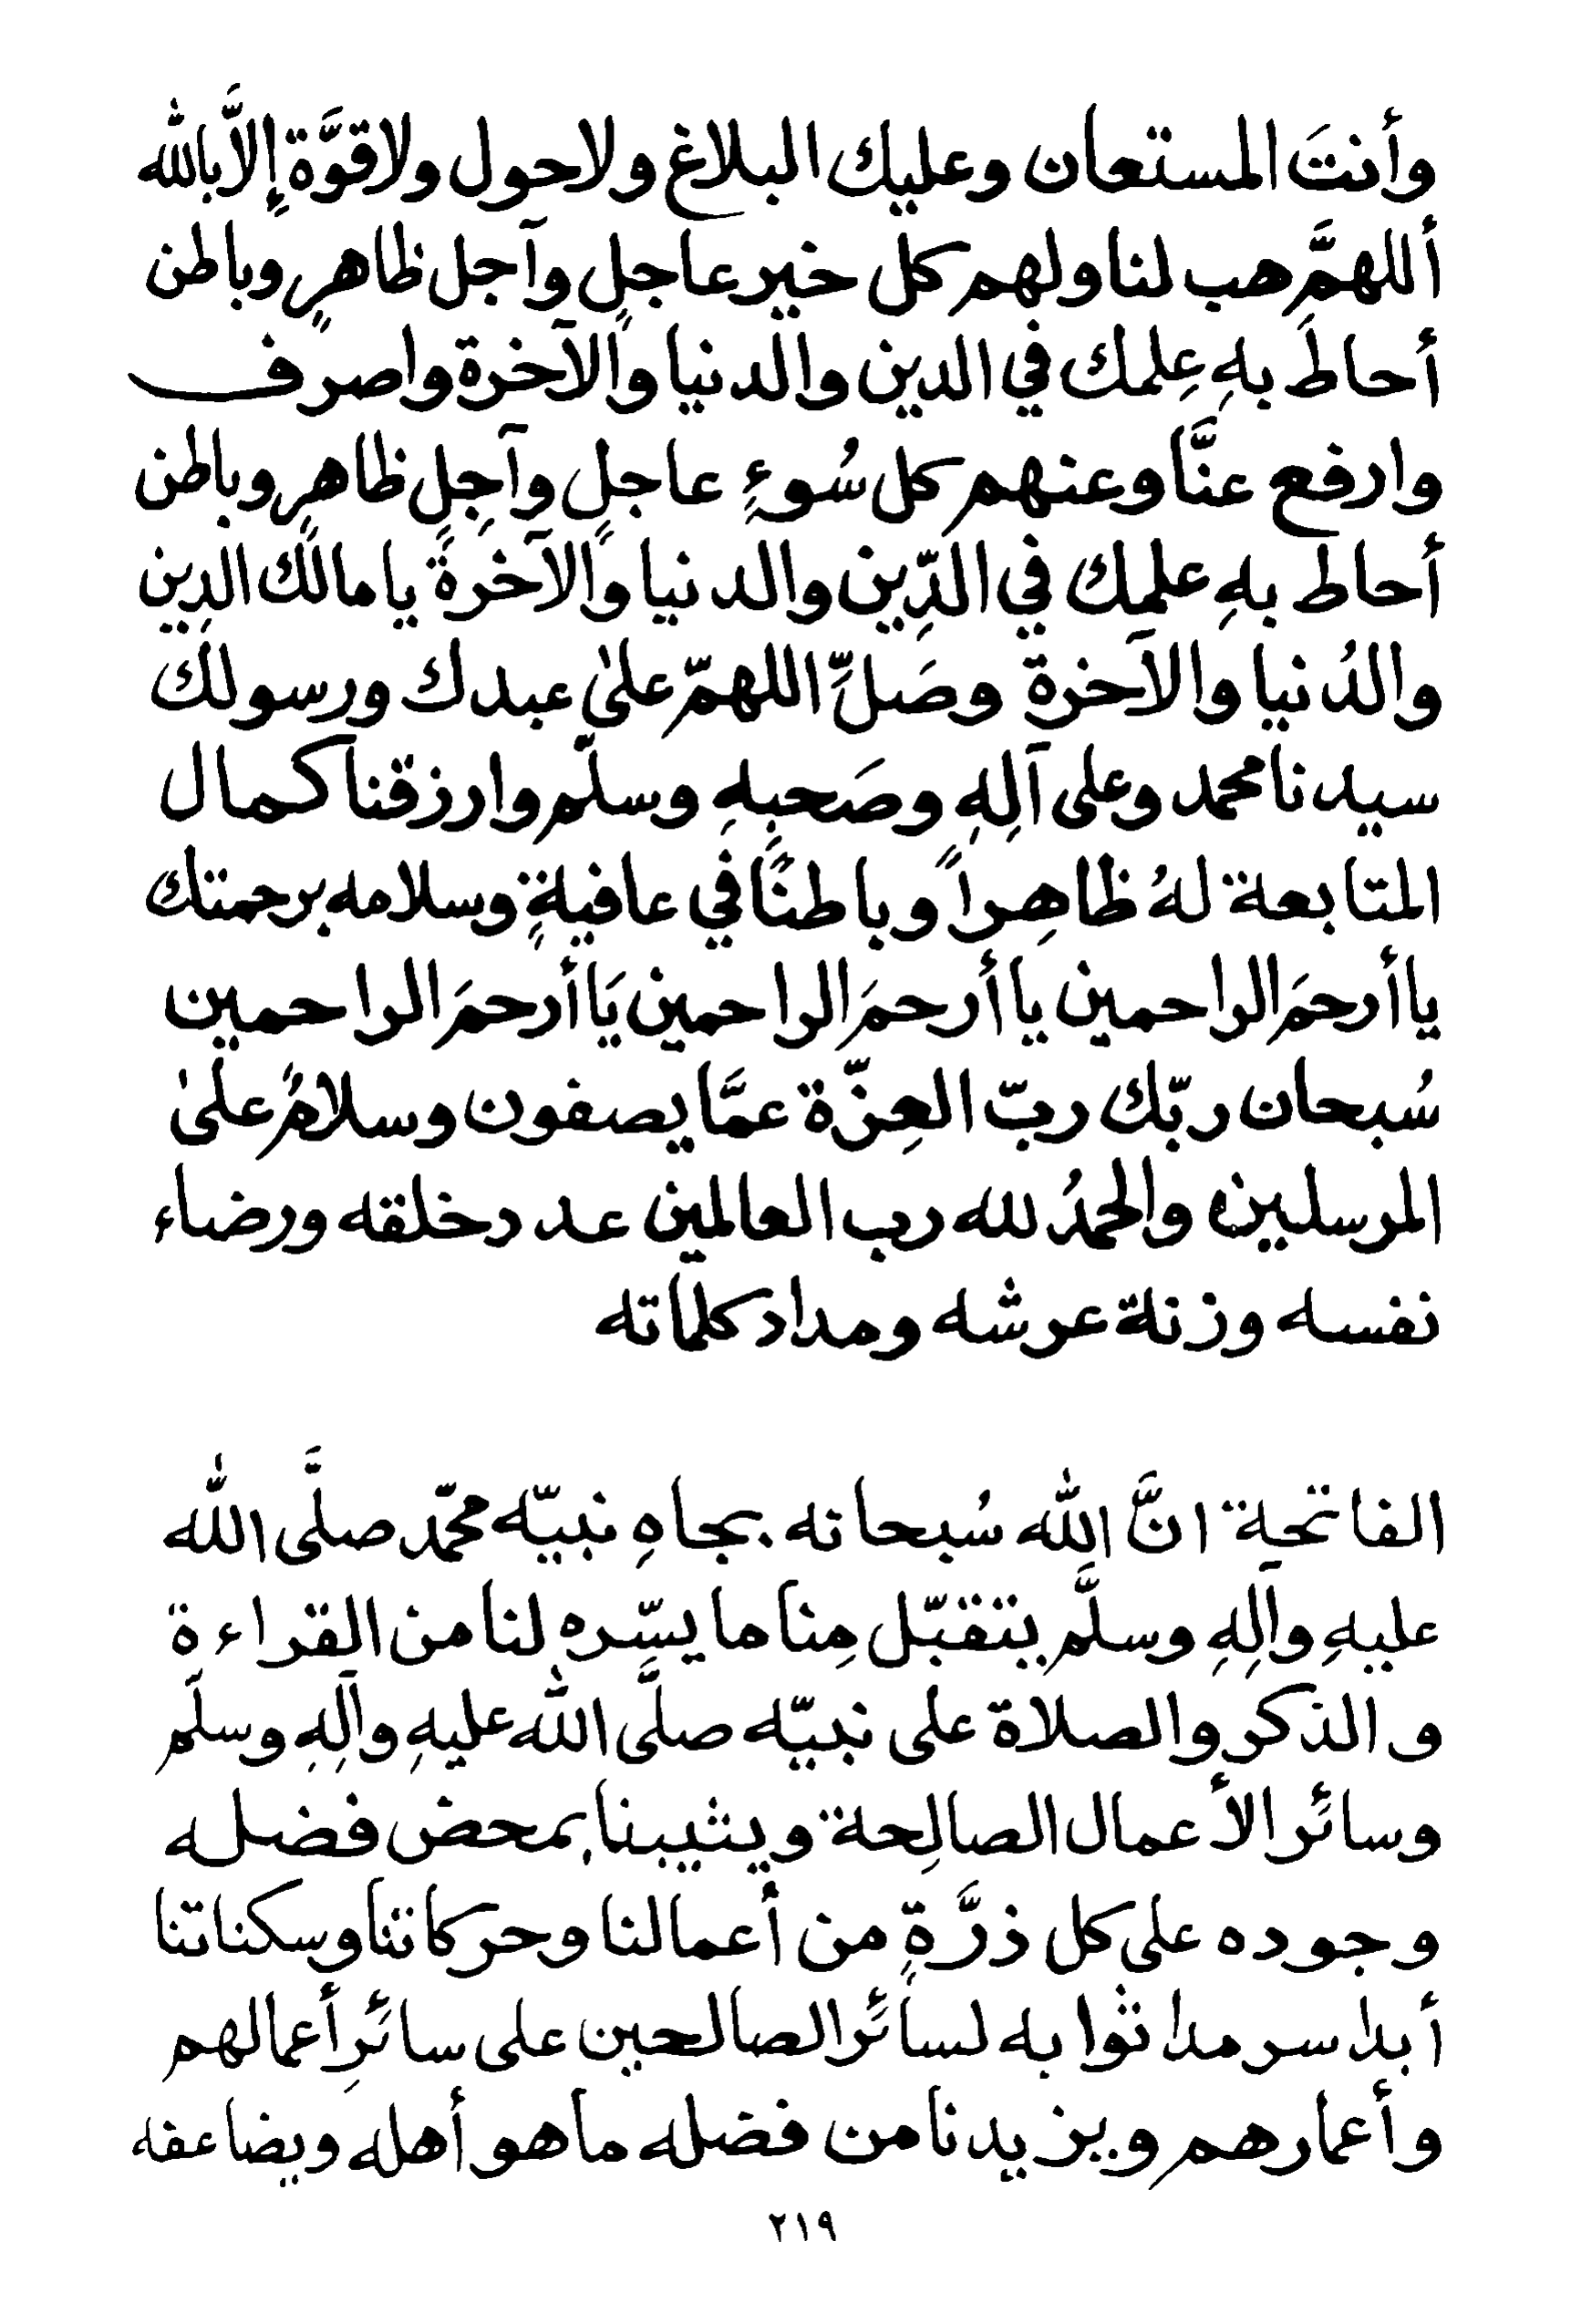 وأنتَ المستعان وعليك البلاغ ولا حول ولا قوَّة إِلاَّ بالله
أللهمَّ هب لنا ولهم كل خير عاجلٍ وآجل ظاهرٍ وباطن
أحاطَ بهِ عِلمك في الدين والدنيا والآخرة واصرف
وارفع عنَّا وعنهم كل سُوءٍ عاجلٍ وآجِلٍ ظاهرٍ وباطن
أحاط بهِ علمك في الدِّين والدنيا والآخرة يا مالك الدِين
والدُنيا والآخرة وصَلِّ اللهمّ علىٰ عبدك ورسولك
سيدنا محمد وعلى آلِهِ وصَحبِهِ وسلّم وارزقنا كمال
المتابعة لهُ ظاهِراً وباطنًا في عافيةٍ وسلامه برحمتك
يا أرحمَ الراحمين يا أرحمَ الراحمين يَا أرحمَ الراحمين
سُبحان ربّك ربّ العِزّة عمَّا يصفون وسلامٌ علىٰ
المرسلين والحمدُ لله رب العالمين عدد خلقه ورضاء
نفسه وزنة عرشه ومداد كلماته
الفاتحة انَّ الله سُبحانه بجاهِ نبيّه محمّد صلَّى الله
عليهِ وآلِهِ وسلَّم يتقبّل مِنا ما يسِّره لنا من القراءة
و الذكر والصلاة على نبيّه صلَّى الله عليهِ وآلِهِ وسلّم
وسائر الأعمال الصالِحة ويثيبنا بمحض فضله
وجوده على كل ذرَّةٍ من أعمالنا وحركاتنا وسكناتنا
أبدا سرمدا ثوابه لسائر الصالحين على سائرِ أعمالهم
وأعمارهم ويزيدنا من فضله ما هو أهله ويضاعفه
٢١٩